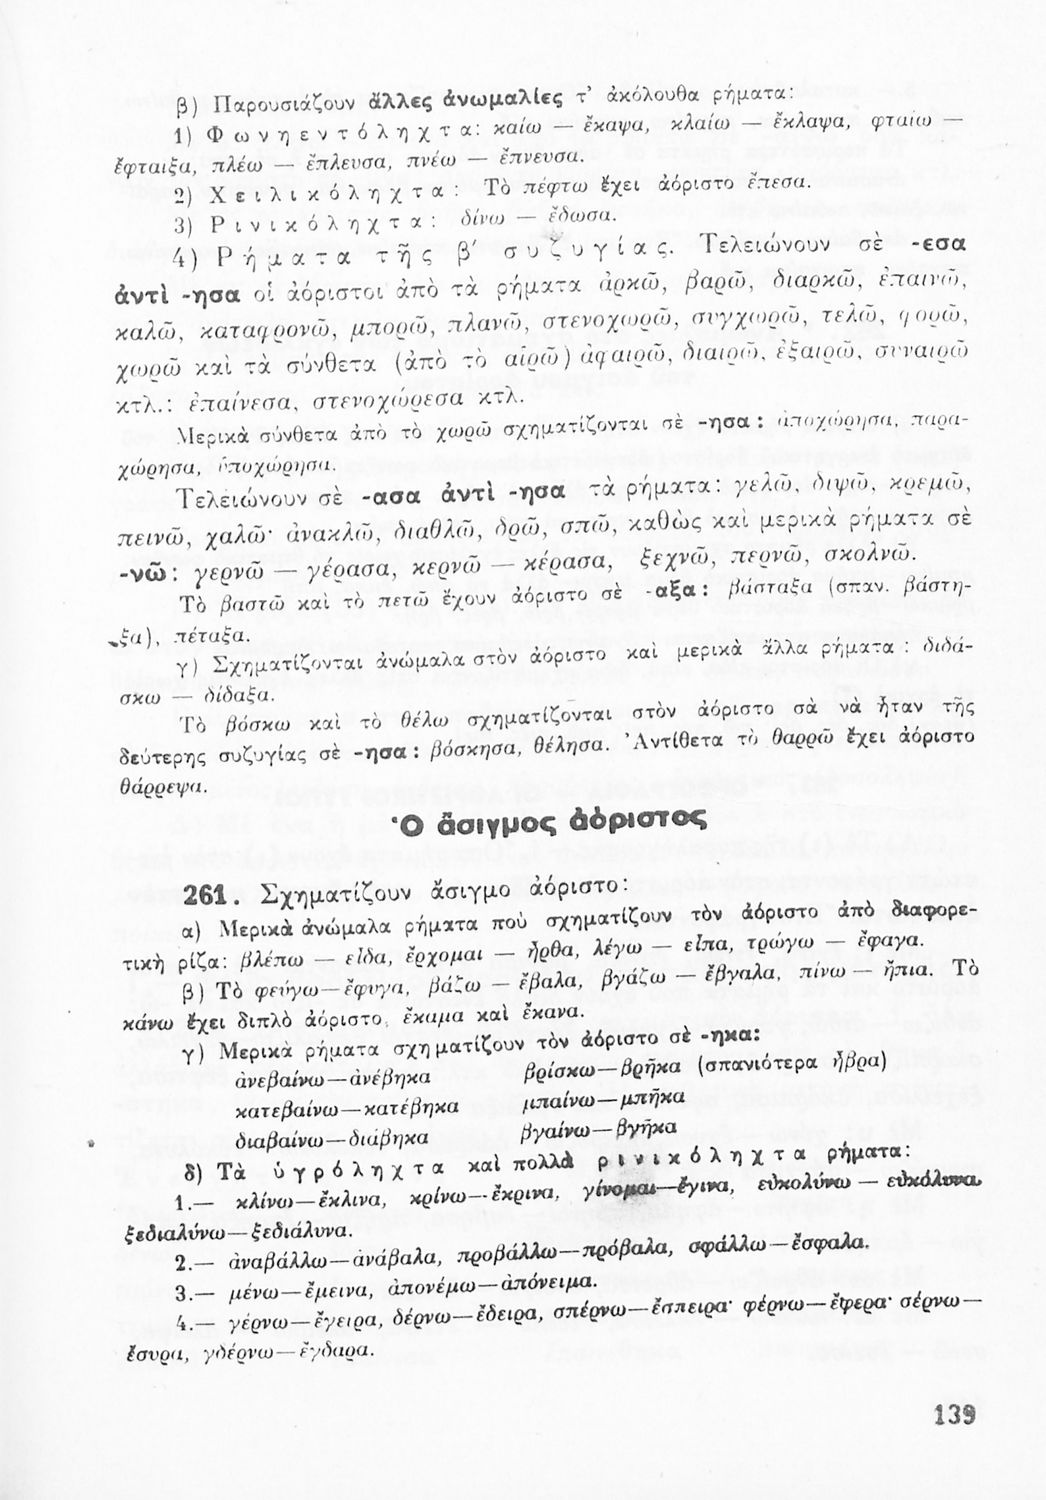 β) Παρουσιάζουν ἄλλες ἀνωμαλίες τ᾽ ἀκόλουθα ρήματα:
1) Φωνηεντόληχτα: καίω — ἔκαψα, κλαίω — ἔκλαψα, φταίω —
ἔφταιξα, πλέω — ἔπλευσα, πνέω — ἔπνευσα.
2) Χειλικόληχτα: Τὸ πέφτω ἔχει ἀόριστο ἔπεσα.
3) Ρινικόληχτα: δίνω — ἔδωσα.
4) Ρήματα τῆς β΄ συζυγίας. Τελειώνουν σὲ -εσα
ἀντὶ -ησα οἱ ἀόριστοι ἀπὸ τὰ ρήματα ἀρκῶ, βαρῶ, διαρκῶ, ἐπαινῶ,
καλῶ, καταφρονῶ, μπορῶ, πλανῶ, στενοχωρῶ, συγχωρῶ, τελῶ, φορῶ,
χωρῶ καὶ τὰ σύνθετα (ἀπὸ τὸ αἱρῶ) ἀφαιρῶ, διαιρῶ, ἐξαιρῶ, συναιρῶ
κτλ.: ἐπαίνεσα, στενοχώρεσα κτλ.
Μερικὰ σύνθετα ἀπὸ τὸ χωρῶ σχηματίζονται σὲ -ησα: ἀποχώρησα, παρα-
χώρησα, ὑποχώρησα.
Τελειώνουν σὲ -ασα ἀντὶ -ησα τὰ ρήματα: γελῶ, διψῶ, κρεμῶ,
πεινῶ, χαλῶ· ἀνακλῶ, διαθλῶ, δρῶ, σπῶ, καθὼς καὶ μερικὰ ρήματα σὲ
-νῶ: γερνῶ — γέρασα, κερνῶ — κέρασα, ξεχνῶ, περνῶ, σκολνῶ.
Τὸ βαστῶ καὶ τὸ πετῶ ἔχουν ἀόριστο σὲ -αξα: βάσταξα (σπαν. βάστη-
ξα), πέταξα.
γ) Σχηματίζονται ἀνώμαλα στὸν ἀόριστο καὶ μερικὰ ἄλλα ρήματα: διδά-
σκω — δίδαξα.
Τὸ βόσκω καὶ τὸ θέλω σχηματίζονται στὸν ἀόριστο σὰ νὰ ἦταν τῆς
δεύτερης συζυγίας σὲ -ησα: βόσκησα, θέλησα. Ἀντίθετα τὸ θαρρῶ ἔχει ἀόριστο
θάρρεψα.
Ὁ ἄσιγμος ἀόριστος
261. Σχηματίζουν ἄσιγμο ἀόριστο:
α) Μερικὰ ἀνώμαλα ρήματα ποὺ σχηματίζουν τὸν ἀόριστο ἀπὸ διαφορε-
τικὴ ρίζα: βλέπω — εἶδα, ἔρχομαι — ἦρθα, λέγω — εἶπα, τρώγω — ἔφαγα.
β) Τὸ φεύγω — ἔφυγα, βάζω — ἔβαλα, βγάζω — ἔβγαλα, πίνω — ἤπια. Τὸ
κάνω ἔχει διπλὸ ἀόριστο, ἔκαμα καὶ ἔκανα.
γ) Μερικὰ ρήματα σχηματίζουν τὸν ἀόριστο σὲ -ηκα:
ἀνεβαίνω — ἀνέβηκα βρίσκω — βρῆκα (σπανιότερα ἦβρα)
κατεβαίνω — κατέβηκα μπαίνω — μπῆκα
διαβαίνω — διάβηκα βγαίνω — βγῆκα
δ) Τὰ ὑγρόληχτα καὶ πολλὰ ρινικόληχτα ρήματα:
1.— κλίνω — ἔκλινα, κρίνω — ἔκρινα, γίνομαι — ἔγινα, εὐκολύνω — εὐκόλυνα,
ξεδιαλύνω — ξεδιάλυνα.
2.— ἀναβάλλω — ἀνάβαλα, προβάλλω — πρόβαλα, σφάλλω — ἔσφαλα.
3.— μένω — ἔμεινα, ἀπονέμω — ἀπόνειμα.
4.— γέρνω — ἔγειρα, δέρνω — ἔδειρα, σπέρνω — ἔσπειρα· φέρνω — ἔφερα· σέρνω —
ἔσυρα, γδέρνω — ἔγδαρα.
139